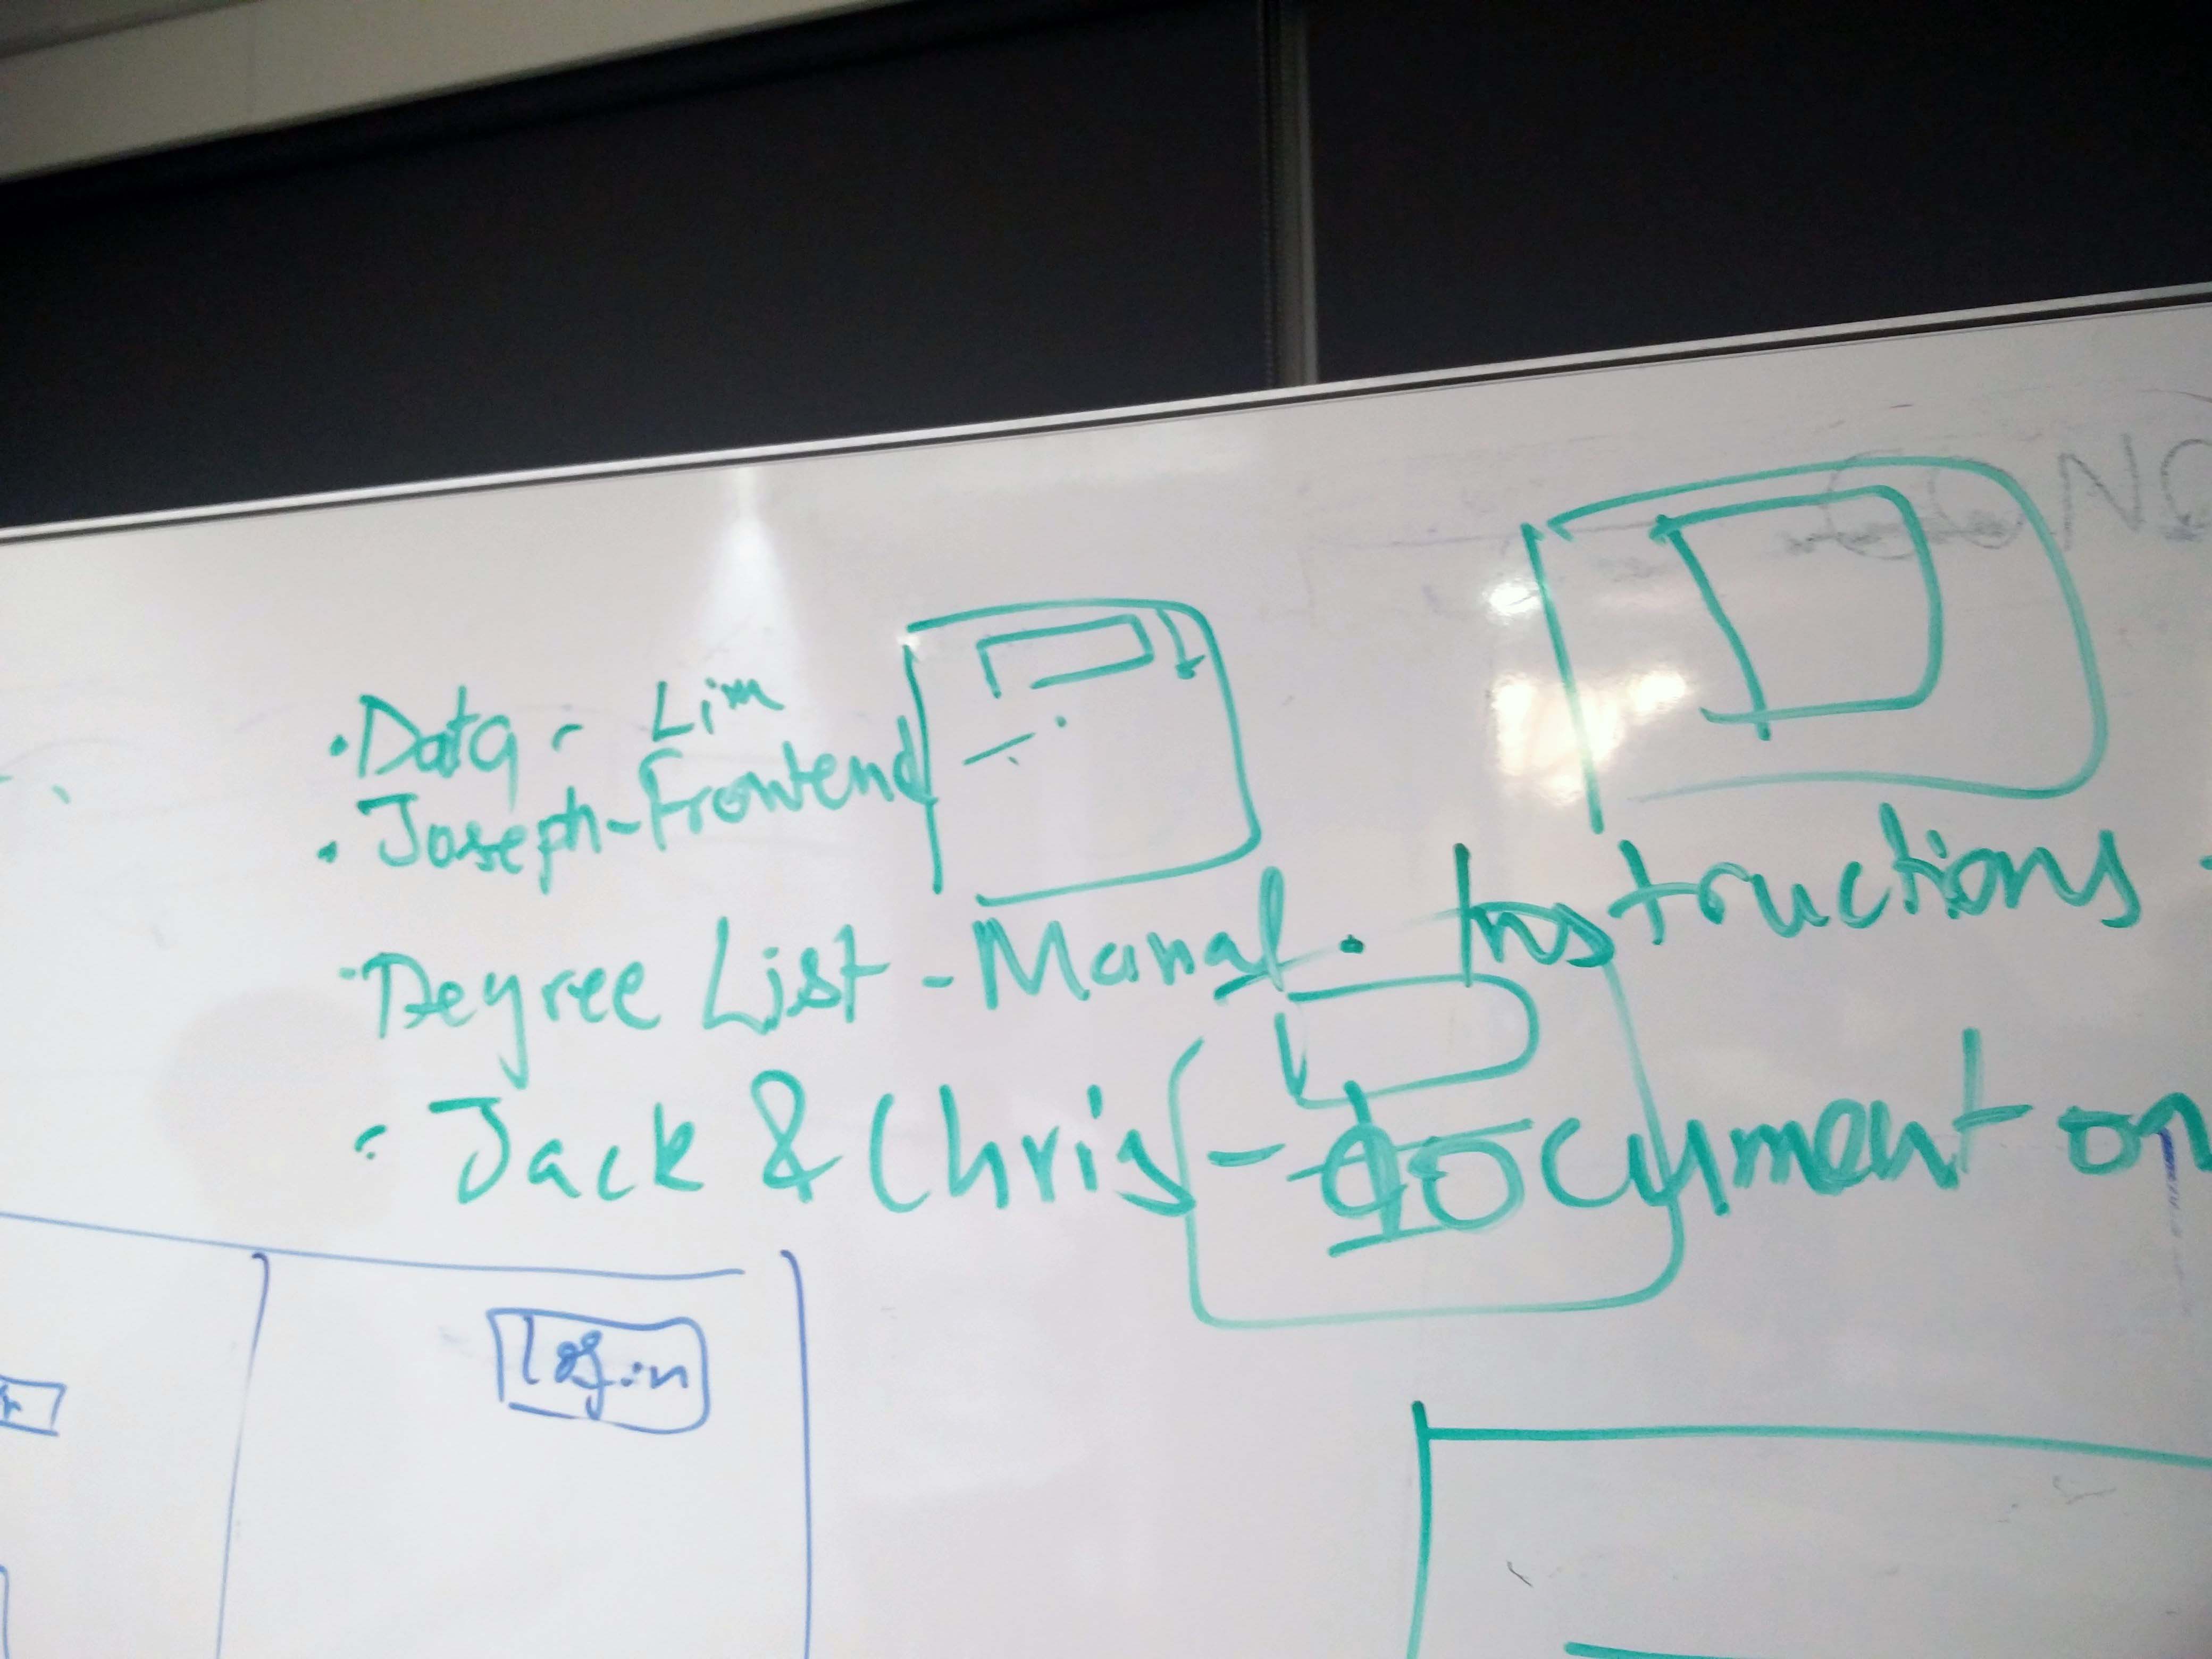 · Data - Lim
· Joseph - Frontend
· Degree List - Manal
· Instructions -
· Jack & Chris - document on
Login